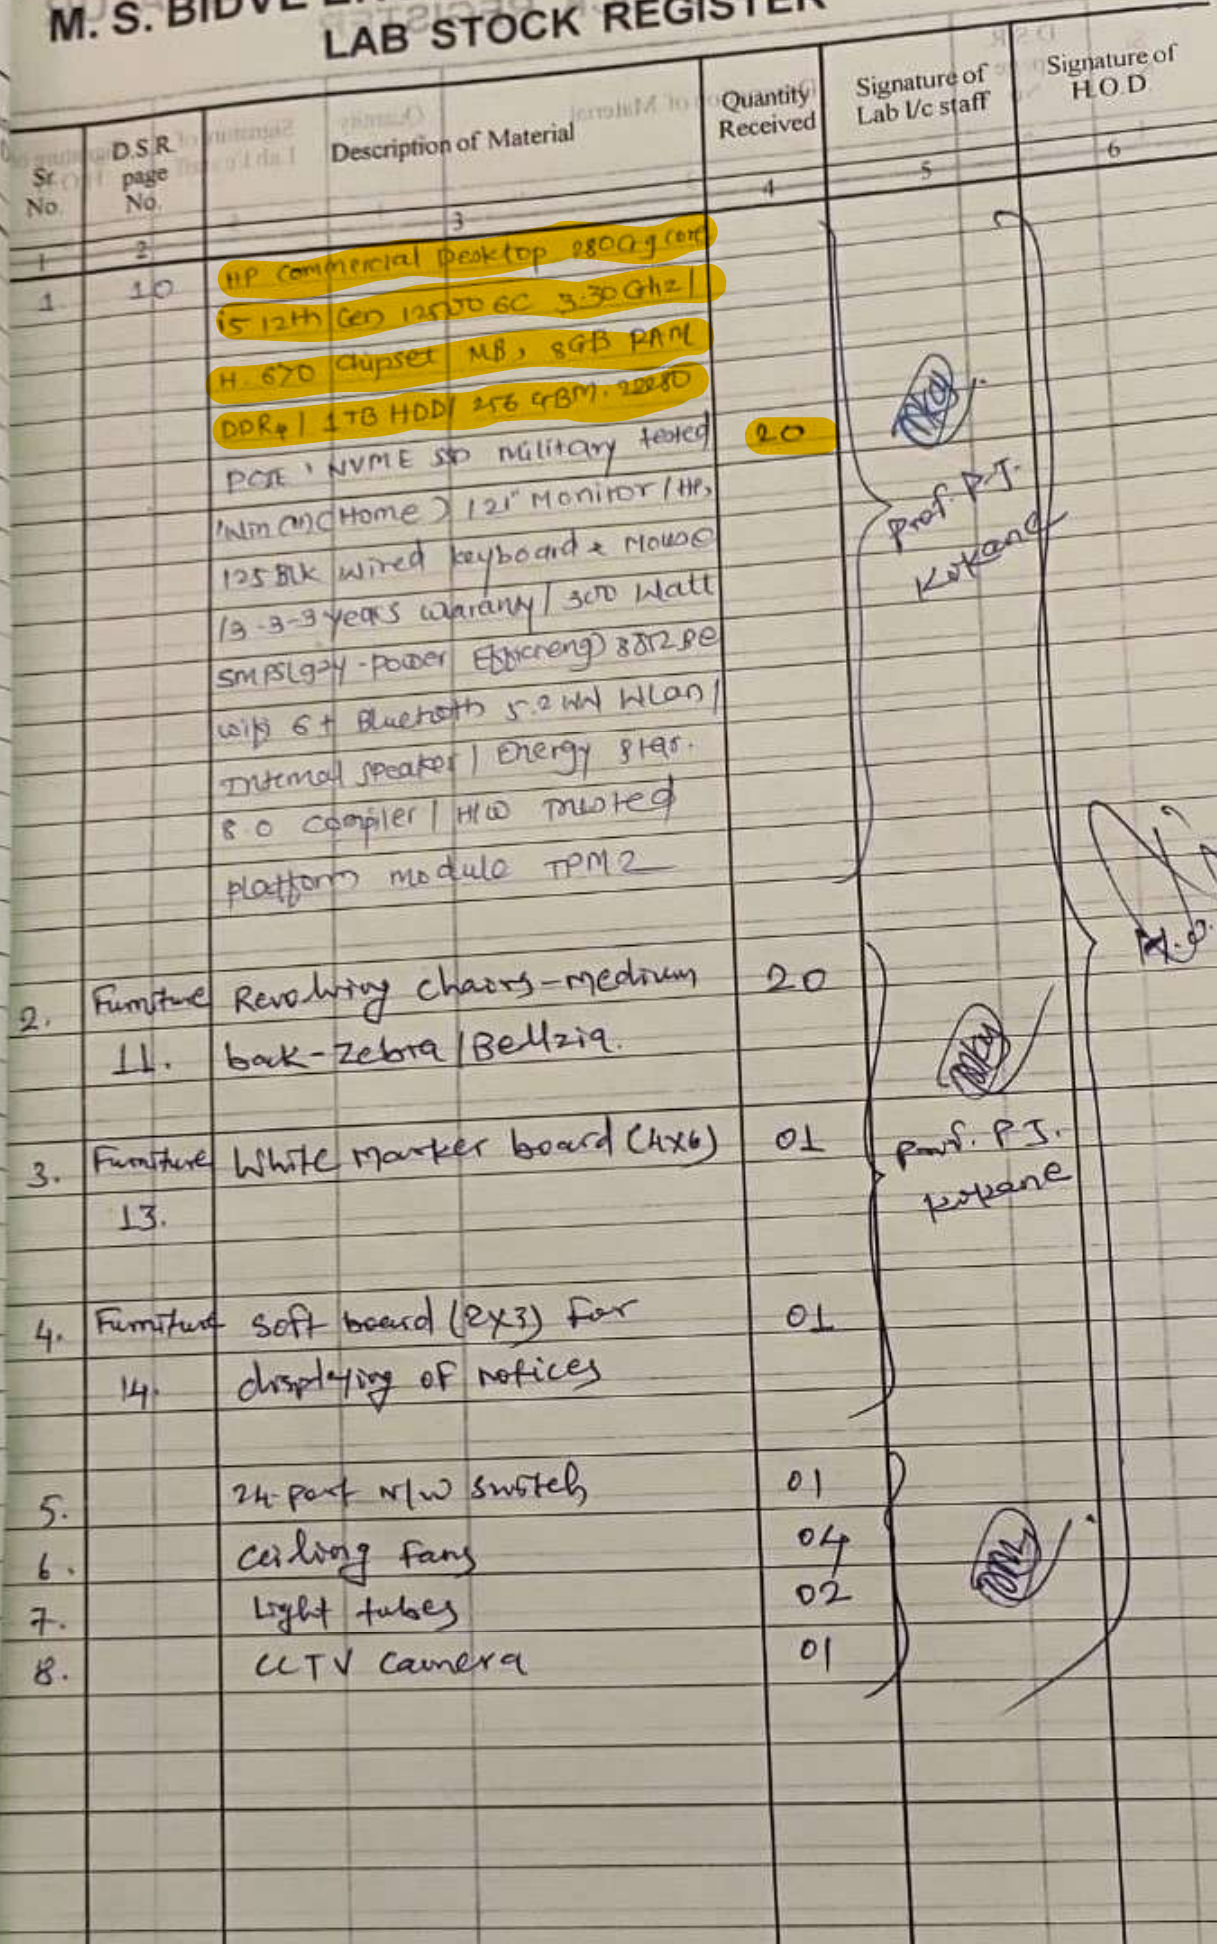 M. S. BIDVE
LAB STOCK REGISTER
Sr. No. D.S.R. page No. Description of Material Quantity Received Signature of Lab I/c staff Signature of H.O.D
1 2 3 4 5 6
1. 10 HP Commercial Desktop 280G9 core
i5 12th Gen 12500 6C 3.30 Ghz |
H. 670 chipset MB, 8GB RAM
DDR4 | 1TB HDD | 256 GB M. 22280
PCIE NVME military tested 20
Home) | 21" Monitor | HP,
125 BLK wired keyboard & Mouse
| 3-3-3 years waranty | 300 Watt
SMPS power
wifi 6 + Bluetooth 5.2 WLan |
Internal speaker | Energy star.
8.0 compiler | H/W Trusted
platform module TPM2
Prof. P.J.
Kokane
2. Furniture Revolving chairs - medium 20
11. back - Zebra | Bellzia.
3. Furniture White Marker board (4x6) 01
13.
Prof. P.J.
Kokane
4. Furniture Soft board (2x3) for 01
14. displaying of notices
5. 24-port N/W switch 01
6. Ceiling fans 04
7. Light tubes 02
8. CCTV Camera 01